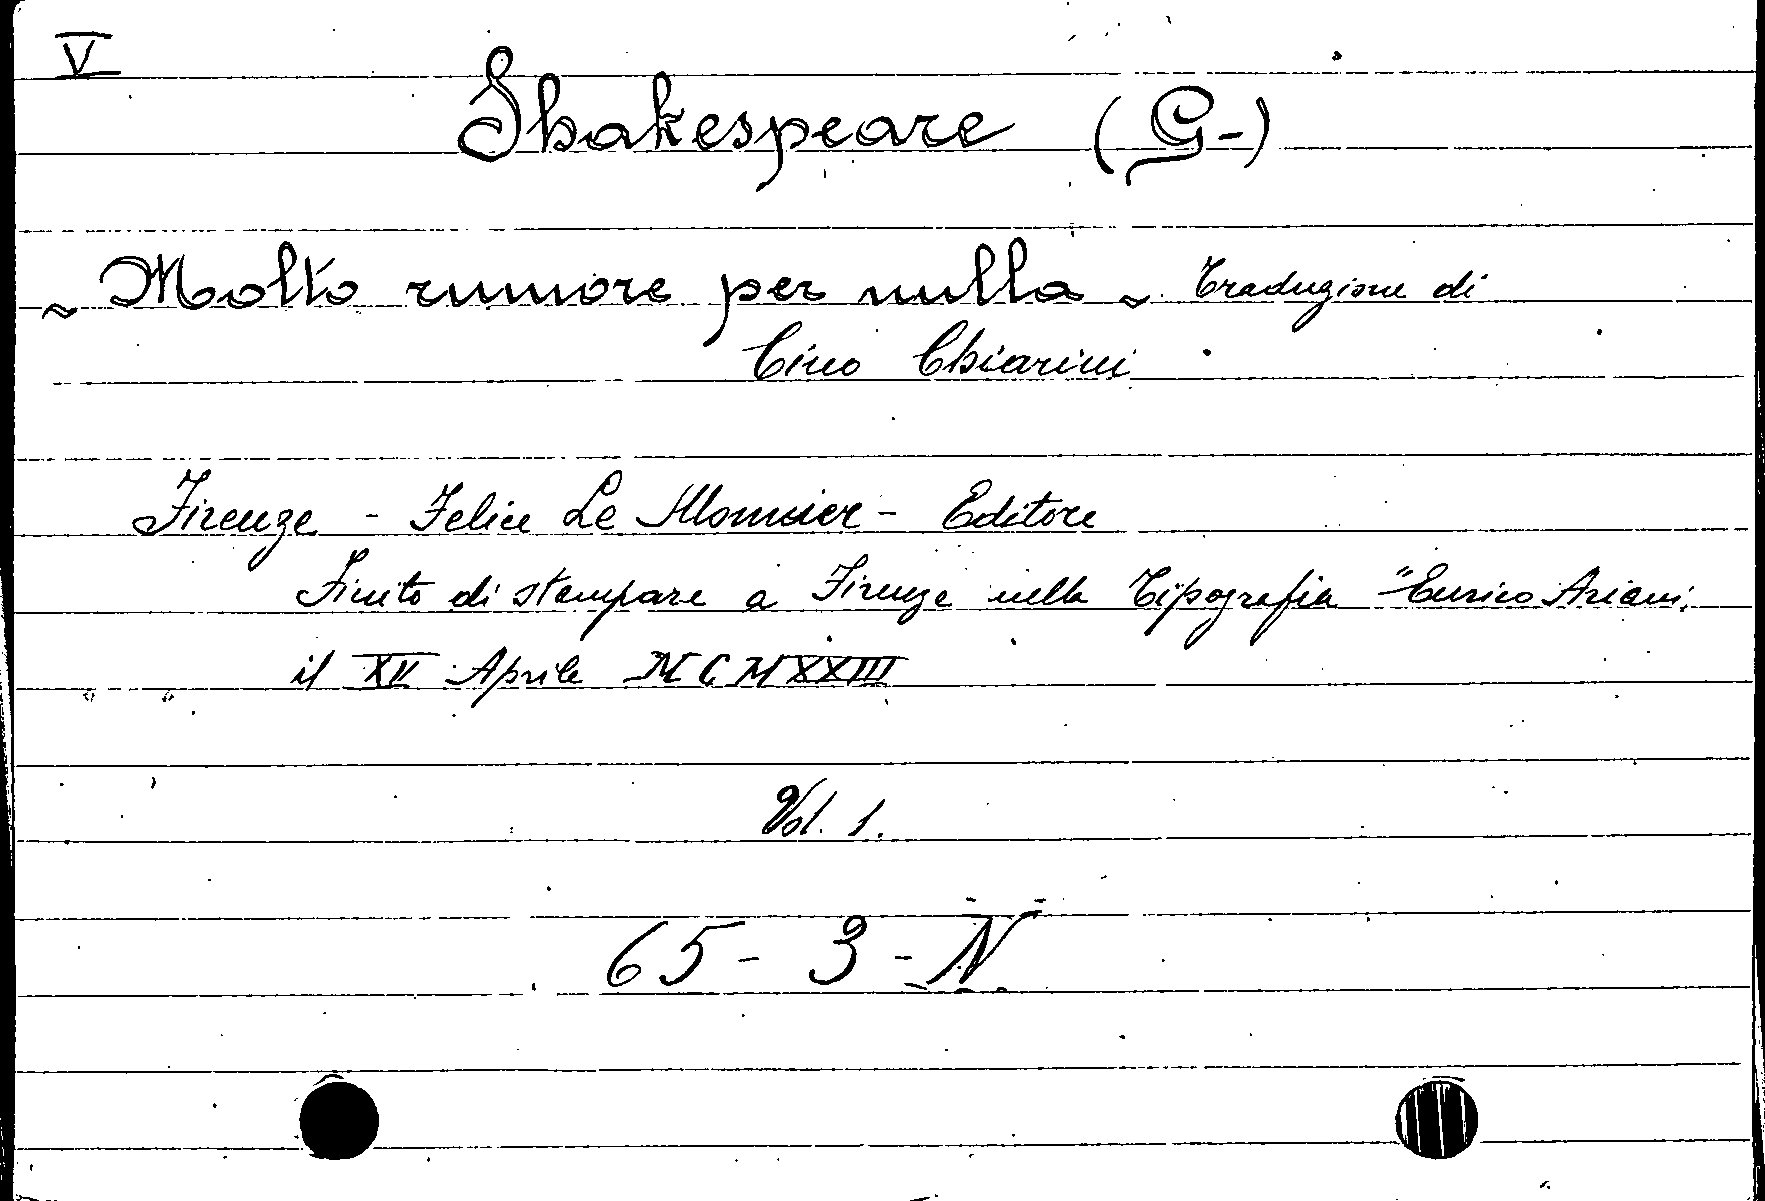 V
Shakespeare (G-)
~ Molto rumore per nulla ~ Traduzione di
Cino Chiarini
Firenze - Felice Le Monnier - Editore
Finito di stampare a Firenze nella Tipografia "Enrico Ariani,
il XII Aprile MCMXXIII
Vol. 1.
65 - 3 - N